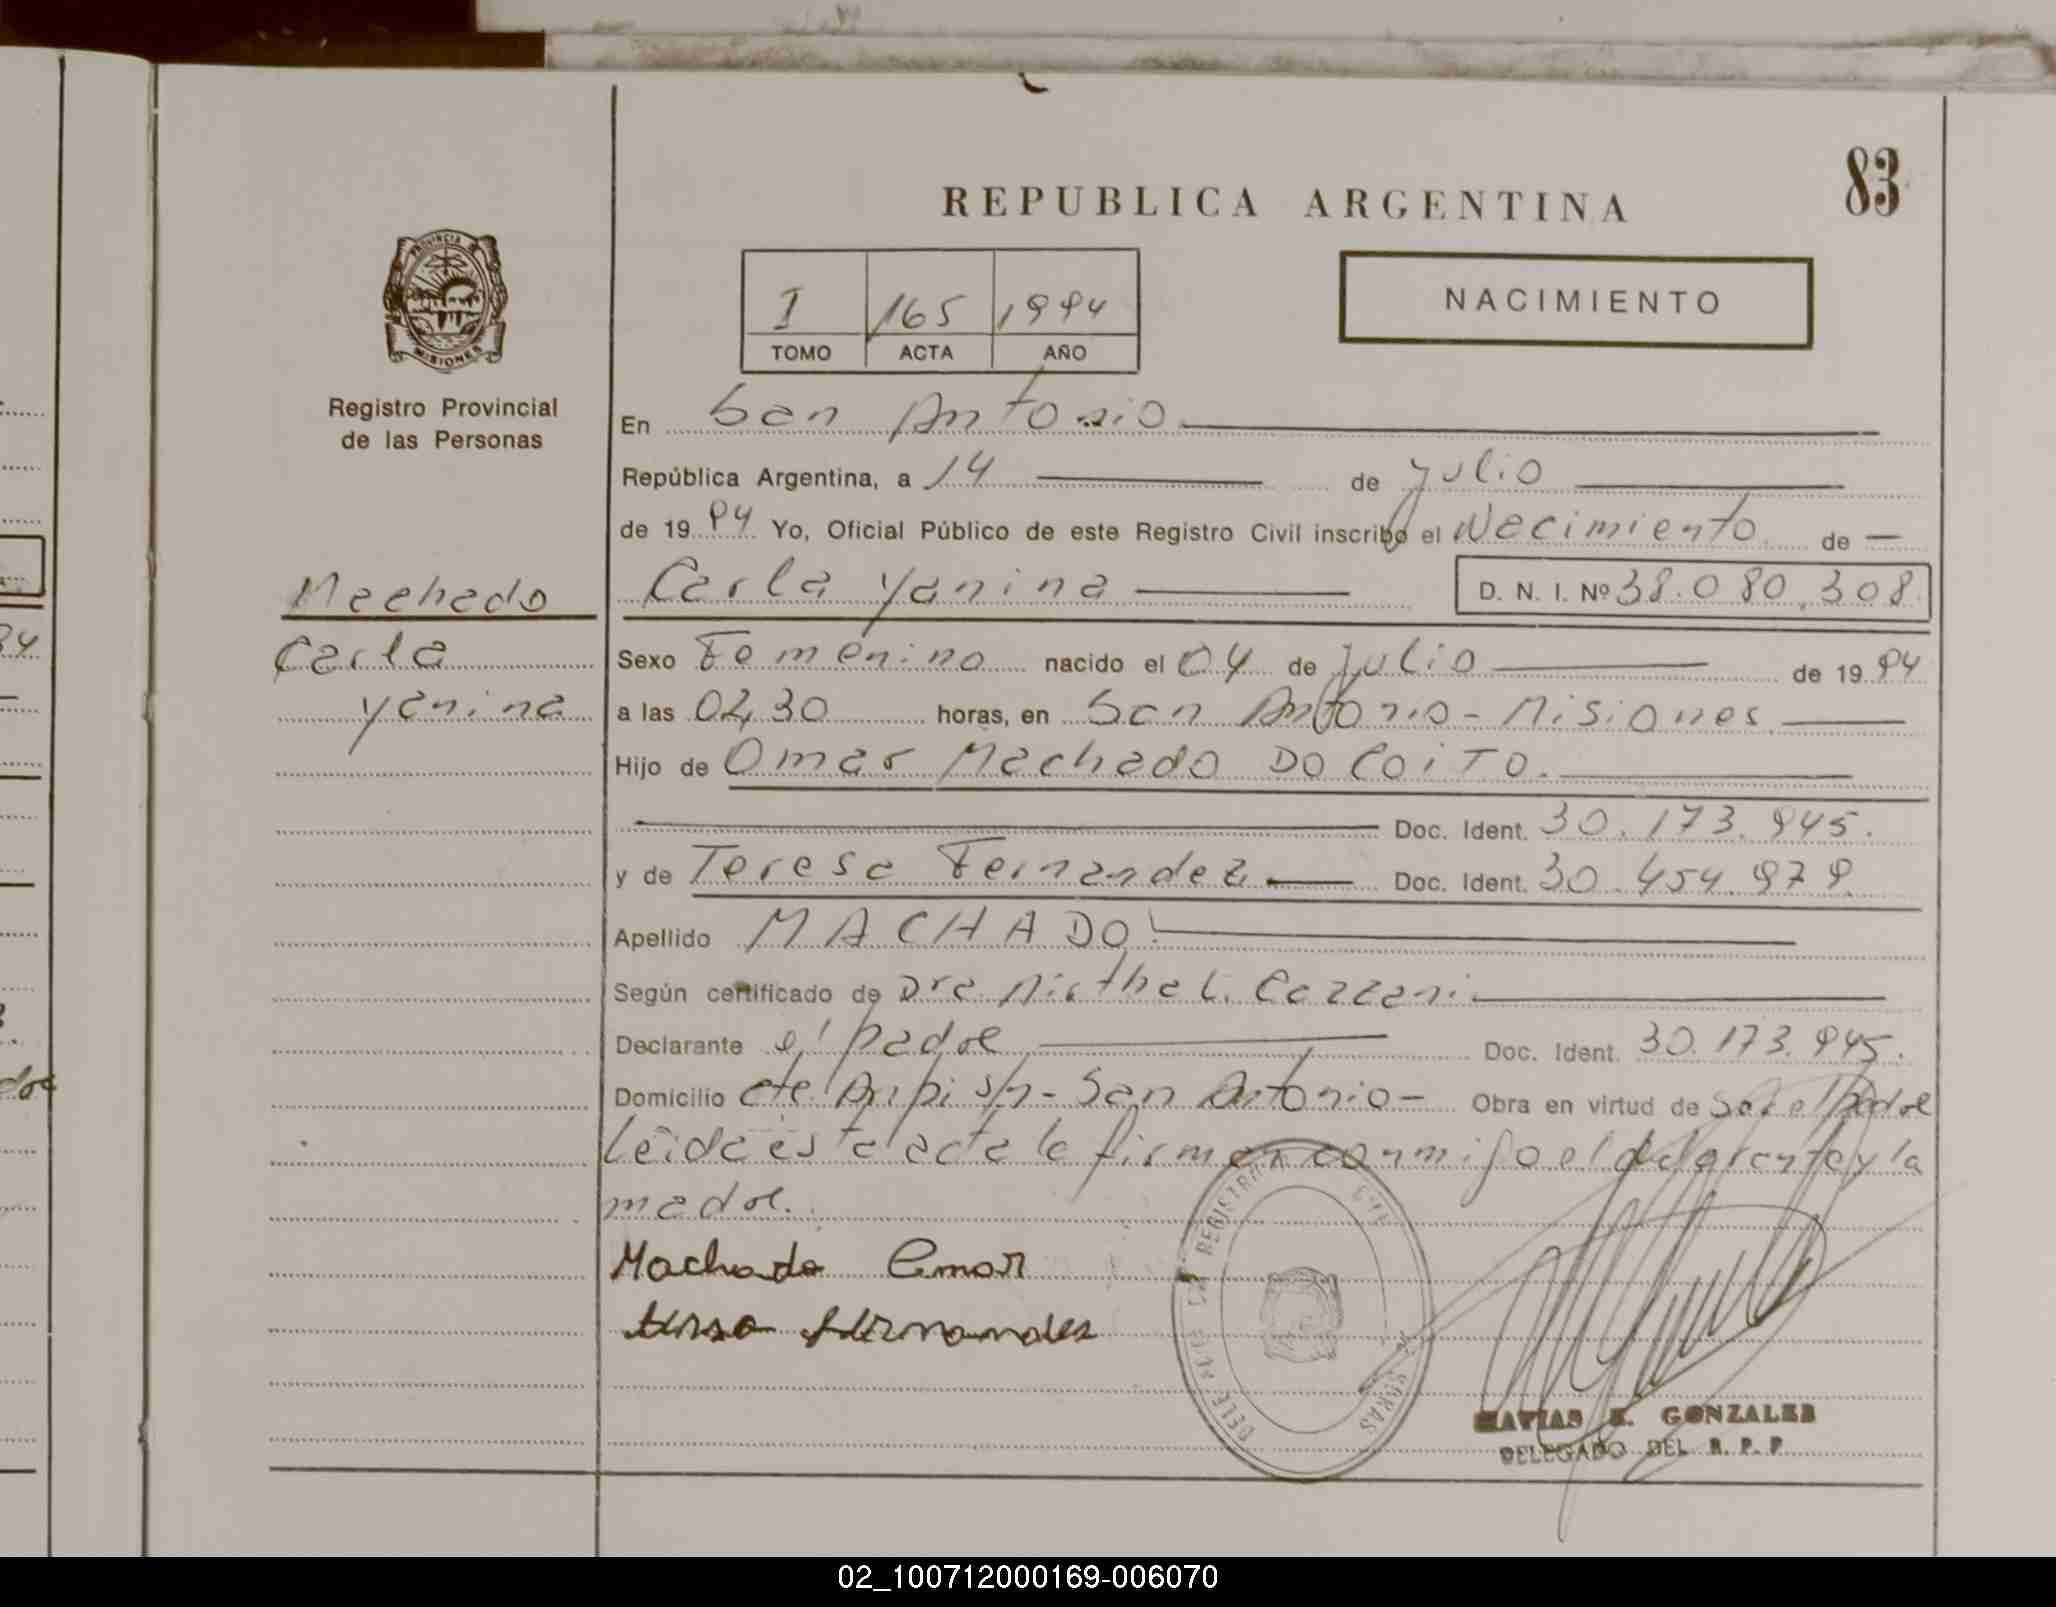 83
REPUBLICA ARGENTINA
PROVINCIA DE
MISIONES
Registro Provincial
de las Personas
I 165 1994
TOMO ACTA AÑO
NACIMIENTO
En San Antonio
República Argentina, a 14 de Julio
de 1994 Yo, Oficial Público de este Registro Civil inscribo el Nacimiento de
Machado
Carla Yanina D. N. I. Nº 38.080.308
Carla
Yanina
Sexo Femenino nacido el 04 de Julio de 1994
a las 02,30 horas, en San Antonio - Misiones
Hijo de Omar Machado DO COITO.
Doc. Ident. 30.173.945.
y de Teresa Fernandez Doc. Ident. 30.454.979.
Apellido MACHADO
Según certificado de Dra. Mirtha L. Cazzani
Declarante el padre Doc. Ident. 30.173.945.
Domicilio Cte. S/n - San Antonio - Obra en virtud de Ser el Padre
Leida esta acta la firman conmigo el y la
madre.
Machado Omar
Fernandez
MATIAS E. GONZALES
DELEGADO DEL R. P. P.
02_100712000169-006070